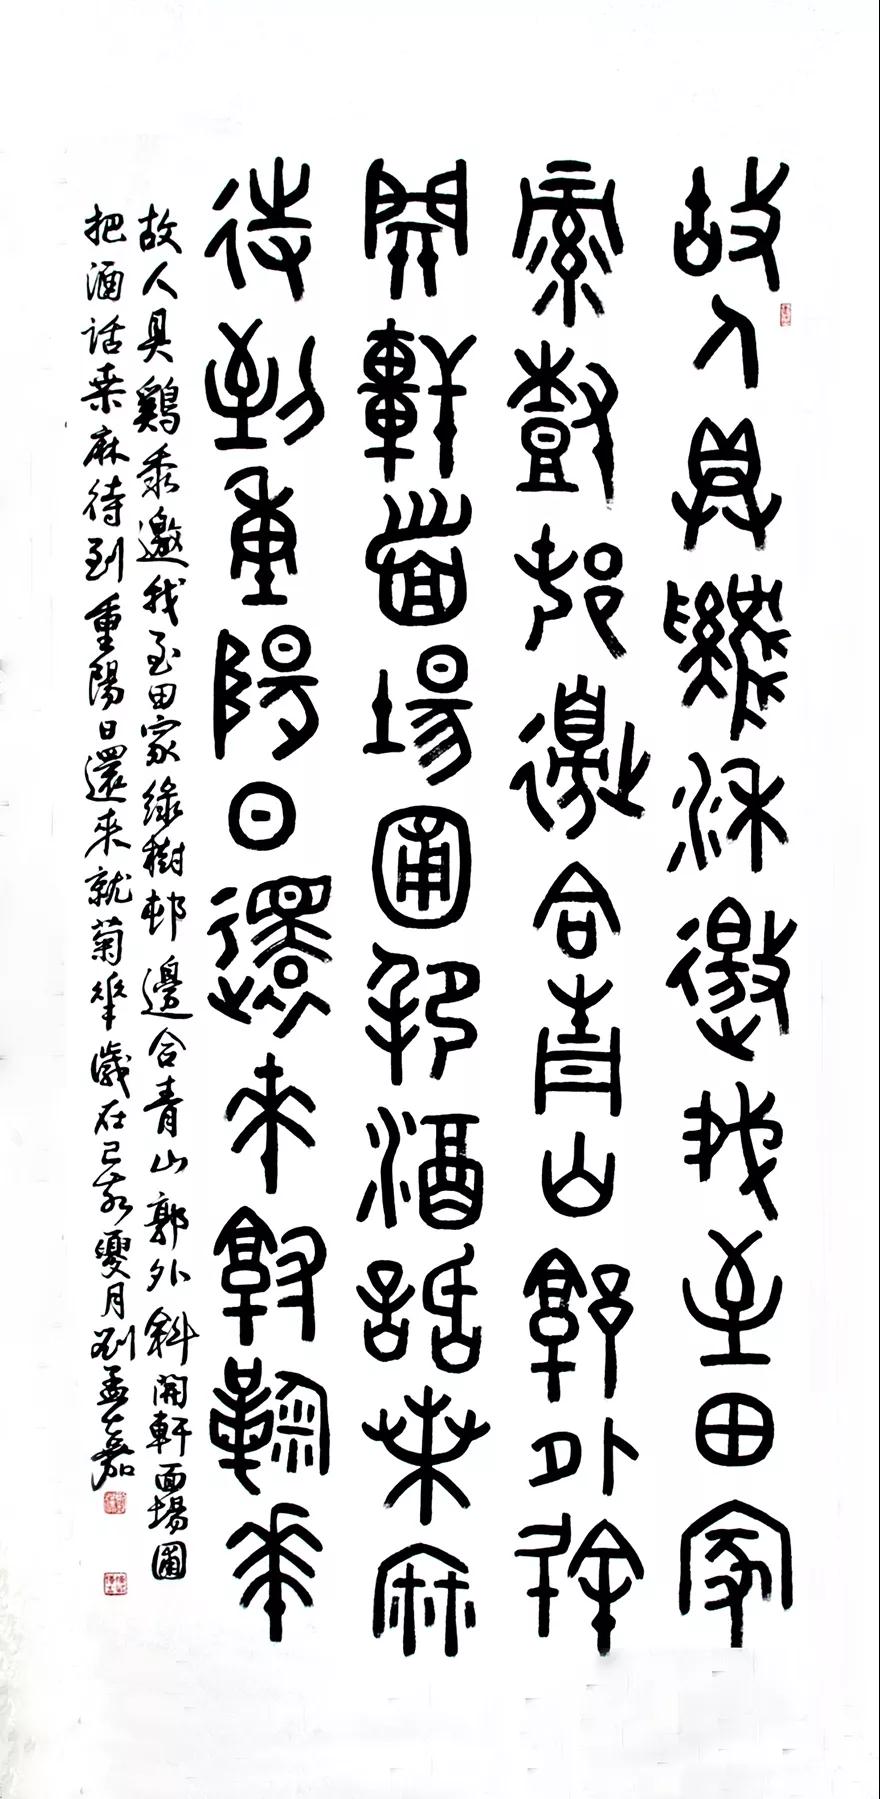 故人具雞黍邀我至田家
綠樹邨邊合青山郭外斜
開軒面場圃把酒話桒麻
待到重陽日還來就菊華
故人具鷄黍邀我至田家綠樹邨邊合青山郭外斜開軒面場圃
把酒話桒麻待到重陽日還來就菊華歲在己亥夏月劉孟嘉